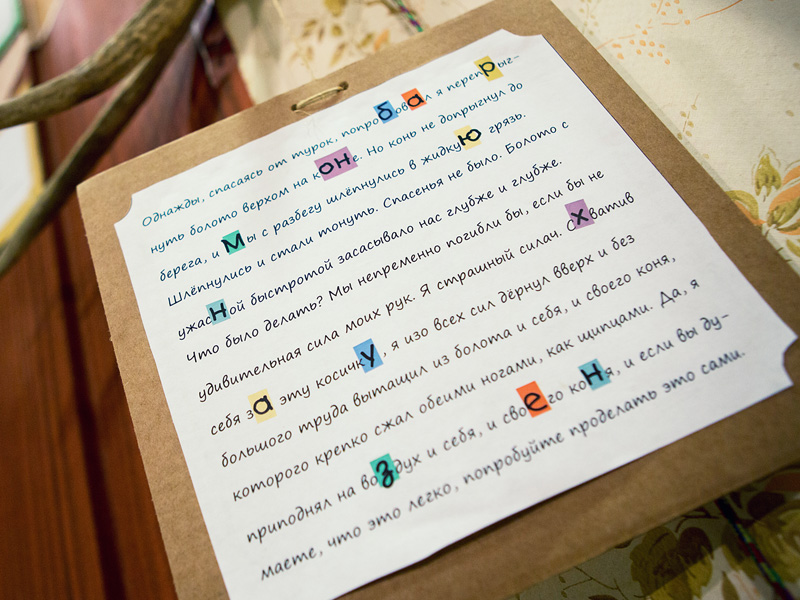 Однажды, спасаясь от турок, попробовал я перепрыг-
нуть болото верхом на коне. Но конь не допрыгнул до
берега, и мы с разбегу шлёпнулись в жидкую грязь.
Шлёпнулись и стали тонуть. Спасенья не было. Болото с
ужасной быстротой засасывало нас глубже и глубже.
Что было делать? Мы непременно погибли бы, если бы не
удивительная сила моих рук. Я страшный силач. Схватив
себя за эту косичку, я изо всех сил дёрнул вверх и без
большого труда вытащил из болота и себя, и своего коня,
которого крепко сжал обеими ногами, как щипцами. Да, я
приподнял на воздух и себя, и своего коня, и если вы ду-
маете, что это легко, попробуйте проделать это сами.